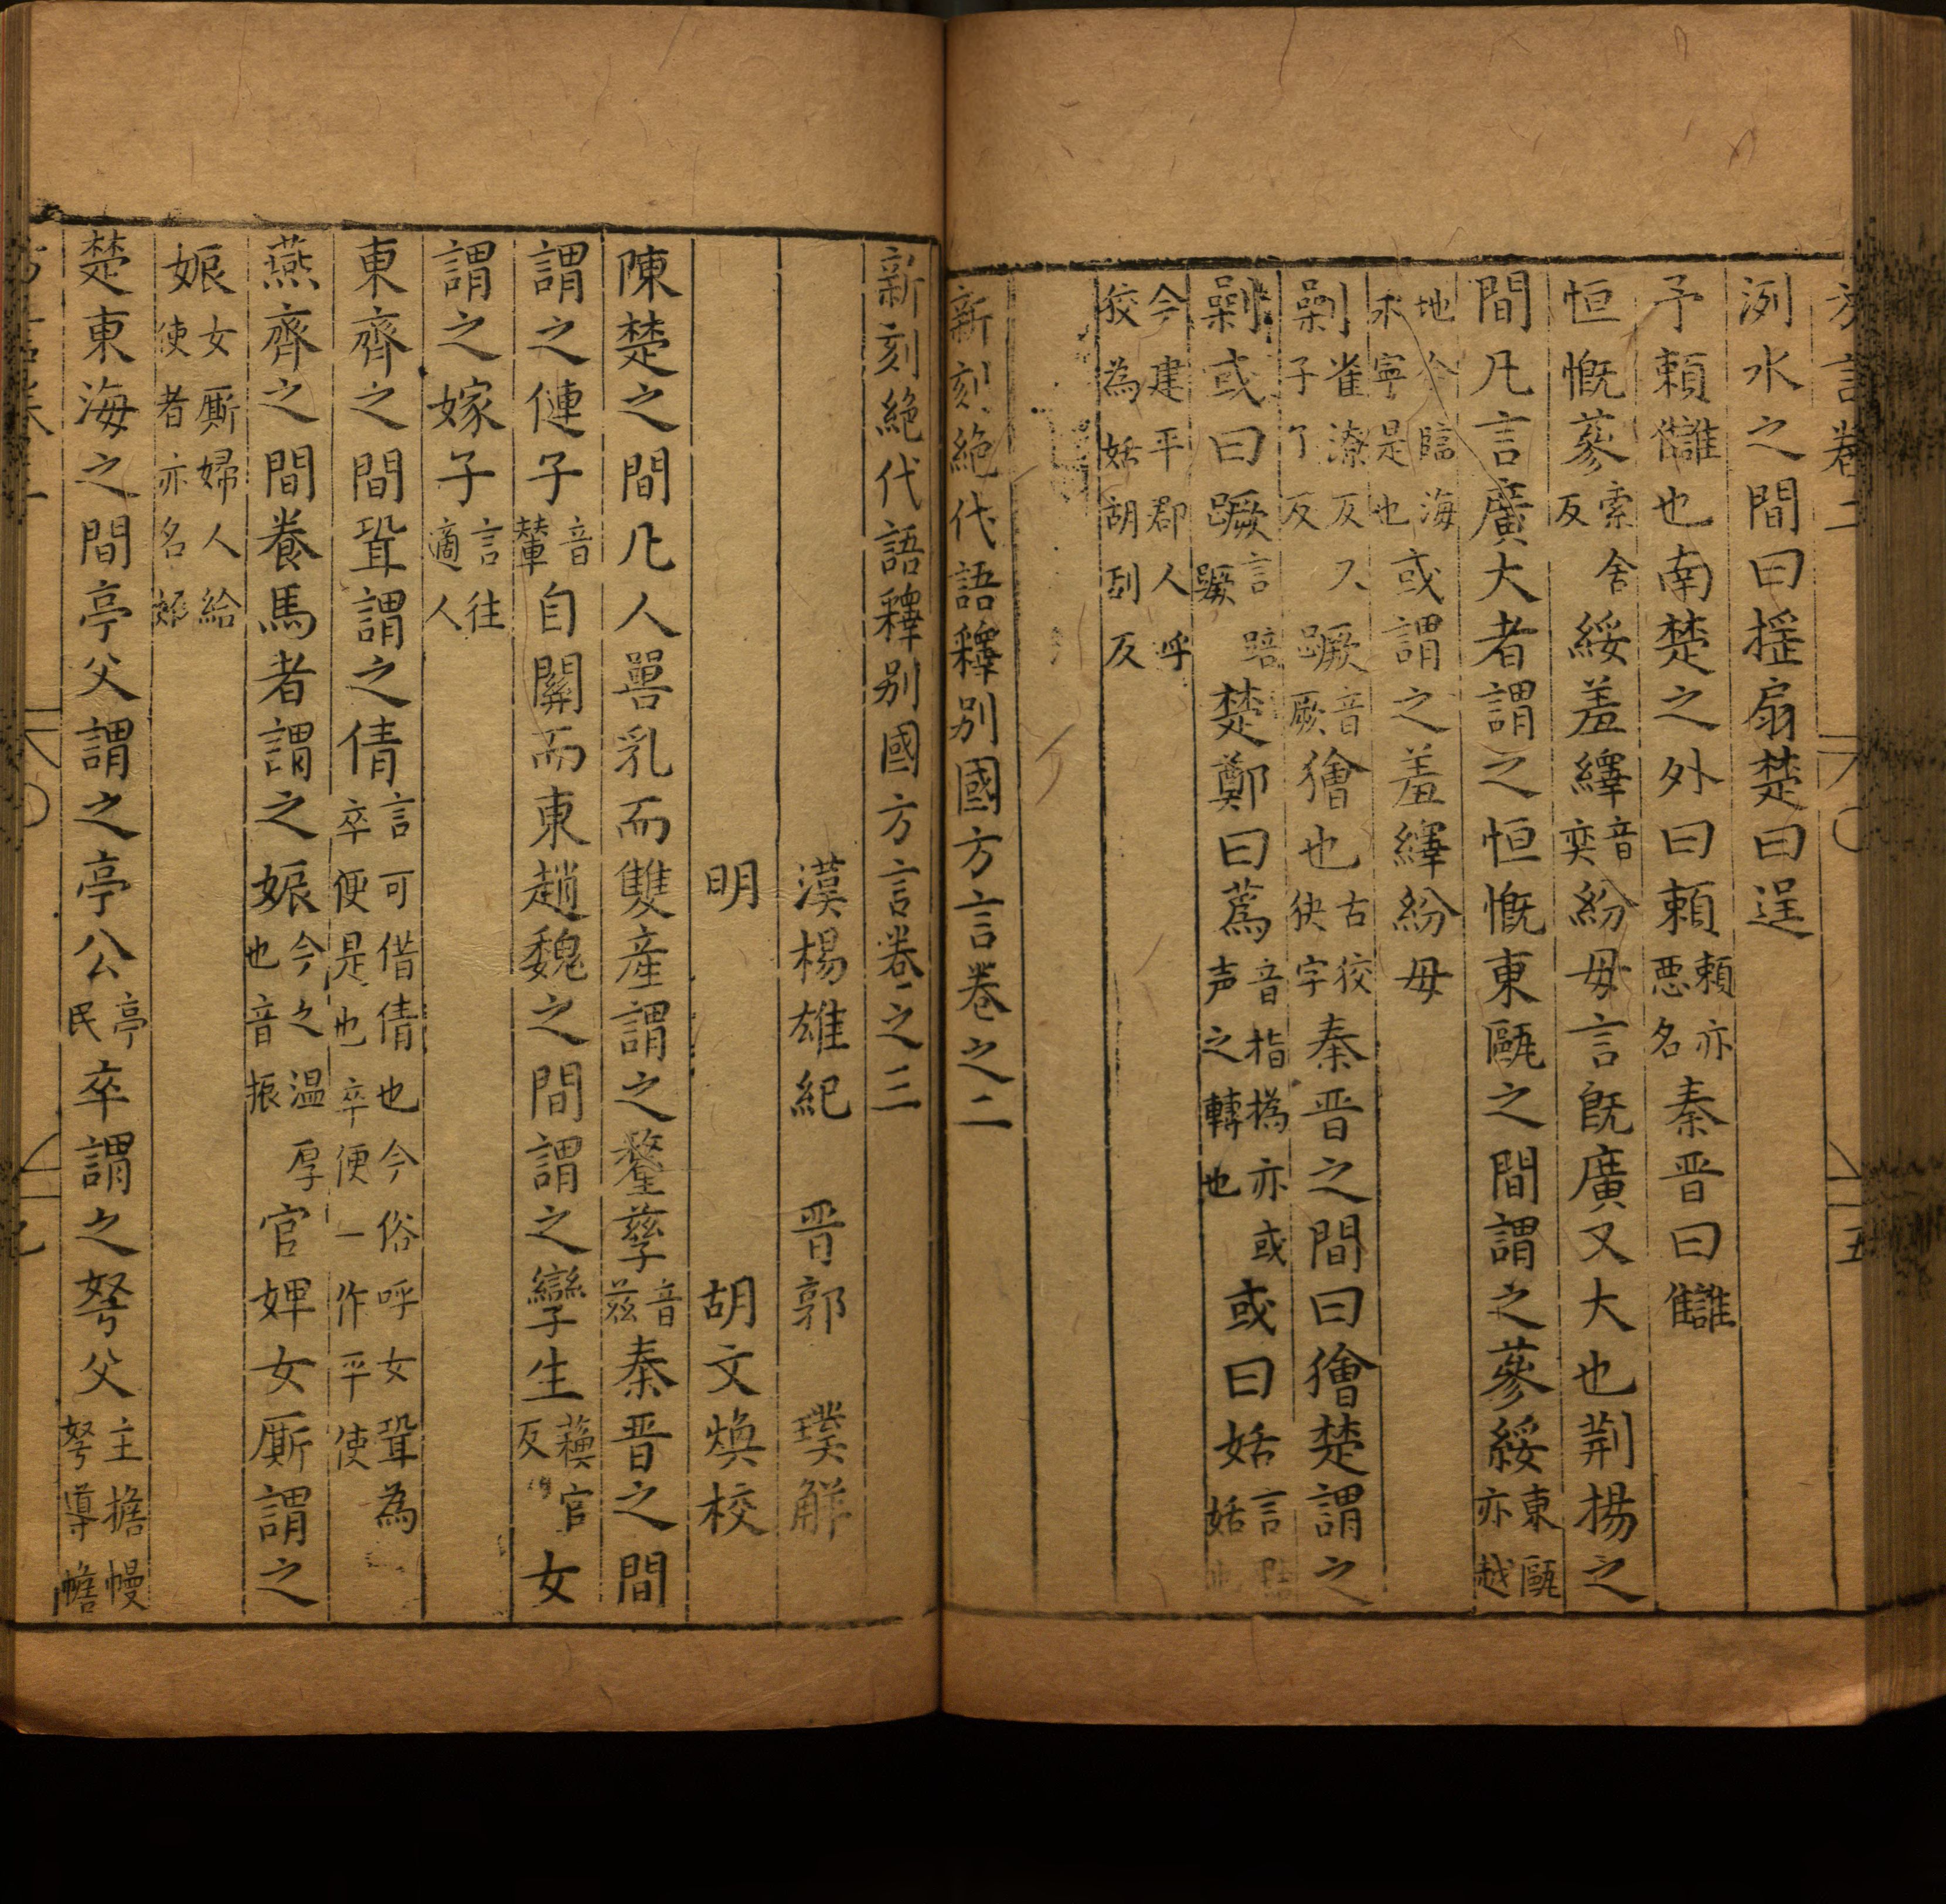 方言卷二 五
洌水之間曰揺扇楚曰逞
予賴讎也南楚之外曰賴賴亦惡名秦晋曰讎
恒慨蔘索舍反綏羞繹音奕紛毋言旣廣又大也荆揚之
間凡言廣大者謂之恒慨東甌之間謂之蔘綏東甌亦越
地今臨海永寧是也或謂之羞繹紛毋
劋雀潦反又子了反蹶音厥獪也古狡狭字秦晋之間曰獪楚謂之
劋或曰蹶言踣蹶楚鄭曰蔿音指撝亦或声之轉也或曰姡言黠姡也
今建平郡人呼狡為姡胡刮反
新刻絶代語釋别國方言卷之二
新刻絶代語釋别國方言卷之三
漢楊雄紀 晋郭璞解
明 胡文煥校
陳楚之間凡人嘼乳而雙産謂之釐孳音兹秦晋之間
謂之僆子音輦自關而東趙魏之間謂之孿生蘓官反女
謂之嫁子言往適人
東齊之間聓謂之倩言可借倩也今俗呼女聓為卒便是也卒便一作平使
燕齊之間養馬者謂之娠今之温厚也音振官婢女厮謂之
娠女厮婦人給使者亦名娠
楚東海之間亭父謂之亭公亭民卒謂之弩父主擔幔弩導幨